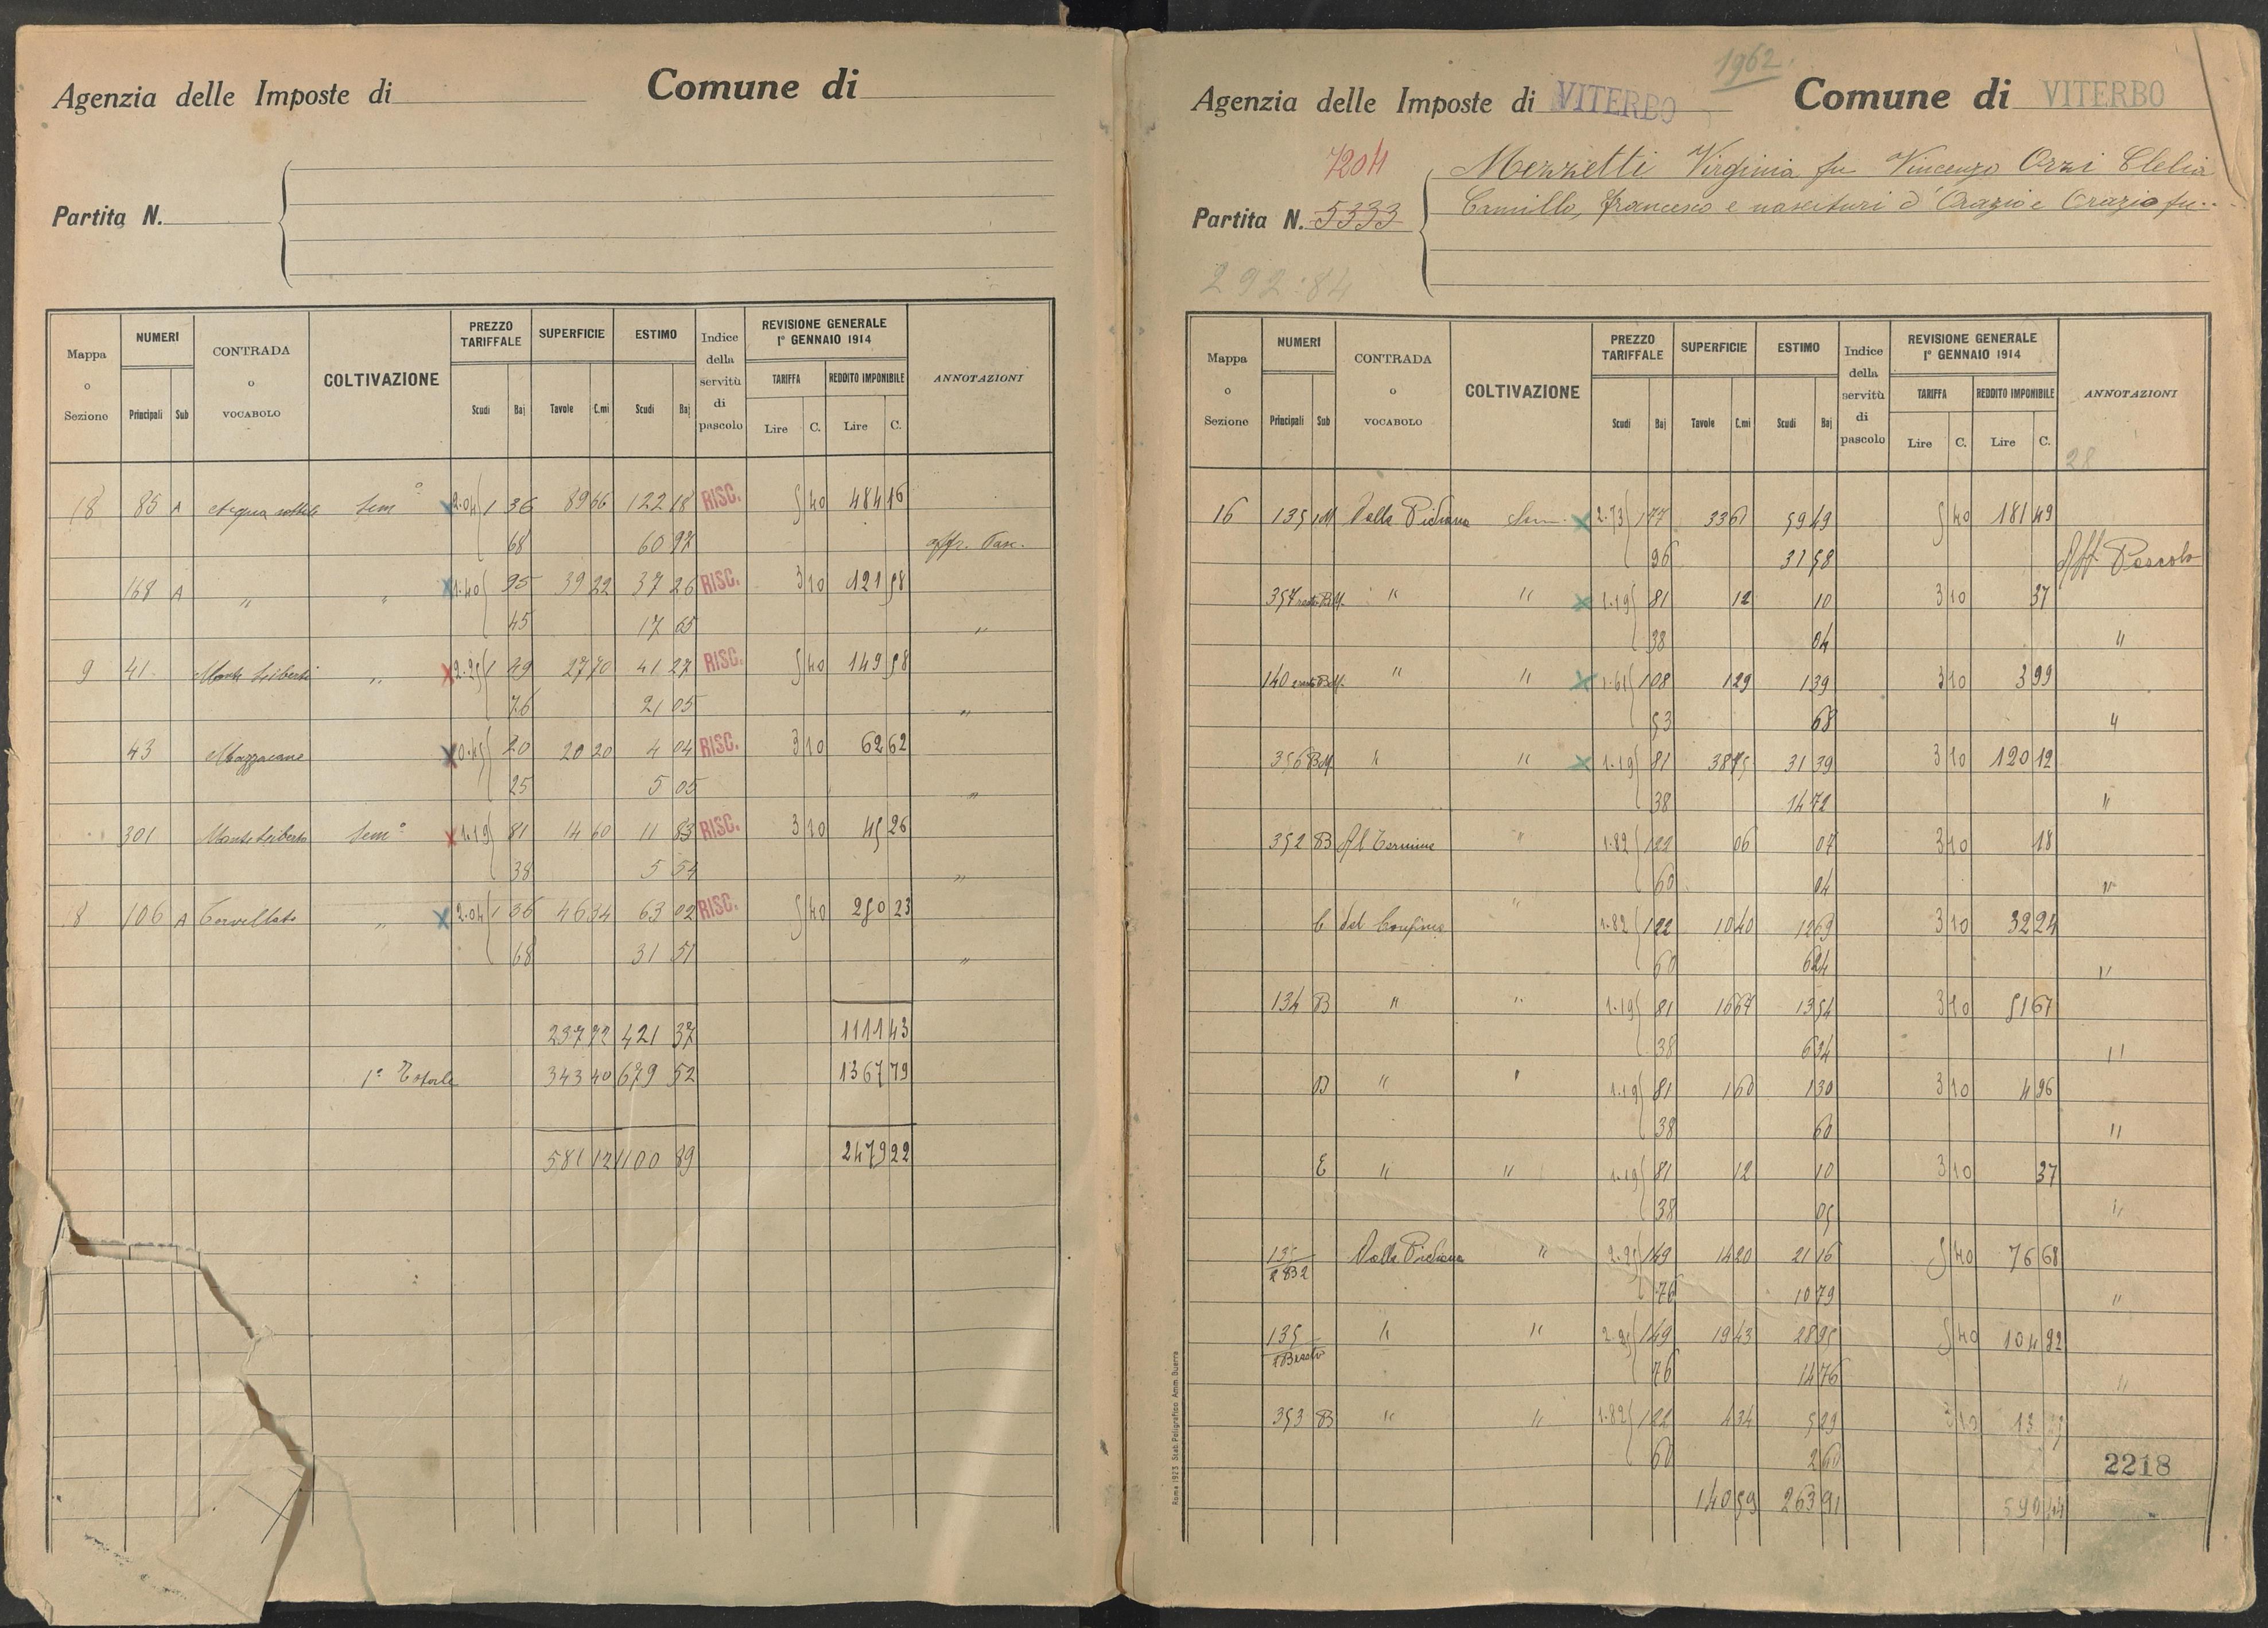 Agenzia delle Imposte di Comune di
Partita N.
Mappa o Sezione NUMERI Principali Sub CONTRADA o VOCABOLO COLTIVAZIONE PREZZO TARIFFALE Scudi Baj SUPERFICIE Tavole C.mi ESTIMO Scudi Baj Indice della servitù di pascolo REVISIONE GENERALE 1° GENNAIO 1914 TARIFFA Lire C. REDDITO IMPONIBILE Lire C. ANNOTAZIONI
18 85 A Sem° 2.04 1 36 89 66 122 18 RISC. 5 40 484 16
68 60 97
168 A " " 1.40 95 39 22 37 26 RISC. 3 10 121 58
45 17 65 "
9 41 " 2.25 1 49 27 70 41 27 RISC. 5 40 149 58
76 21 05 "
43 Mazzacane 0.45 20 20 20 4 04 RISC. 3 10 62 62
25 5 05 "
301 Sem° 1.19 81 14 60 11 83 RISC. 3 10 45 26
38 5 54 "
8 106 A " 2.04 1 36 46 34 63 02 RISC. 5 40 250 23
68 31 51 "
237 72 421 37 1111 43
1° Totale 343 40 679 52 1367 79
581 12 1100 89 2479 22
1962.
Agenzia delle Imposte di VITERBO Comune di VITERBO
7204
Mezzetti Virginia fu Vincenzo Orzi Clelia
Partita N. 5333 Camillo, Francesco e nascituri d'Orazio e Orazio fu..
292:84
Mappa o Sezione NUMERI Principali Sub CONTRADA o VOCABOLO COLTIVAZIONE PREZZO TARIFFALE Scudi Baj SUPERFICIE Tavole C.mi ESTIMO Scudi Baj Indice della servitù di pascolo REVISIONE GENERALE 1° GENNAIO 1914 TARIFFA Lire C. REDDITO IMPONIBILE Lire C. ANNOTAZIONI
28
16 135 1M 2.73 1 77 33 61 59 49 5 40 181 49
96 31 58 Aff. Pascolo
357 " " 1.19 81 12 10 3 10 37
38 04 "
140 " " 1.61 1 08 1 29 1 39 3 10 3 99
53 68 "
356 BM " " 1.19 81 38 75 31 39 3 10 120 12
38 14 72 "
352 B Al Termine " 1.82 1 22 06 07 3 10 18
60 04 "
C del Confine " 1.82 1 22 10 40 12 69 3 10 32 24
60 6 24 "
134 B " " 1.19 81 16 67 13 54 3 10 51 67
38 6 34 "
D " " 1.19 81 1 60 1 30 3 10 4 96
38 60 "
E " " 1.19 81 12 10 3 10 37
38 05 "
135 " 2.25 1 49 14 20 21 16 5 40 76 68
76 10 79 "
135 " " 2.25 1 49 19 43 28 95 5 40 104 92
76 14 76 "
353 B " " 1.82 1 22 4 34 5 29 3 10 13
60 2 60
2218
140 59 263 91 590 44
Roma 1923 Stab. Poligrafico Amm. Guerra